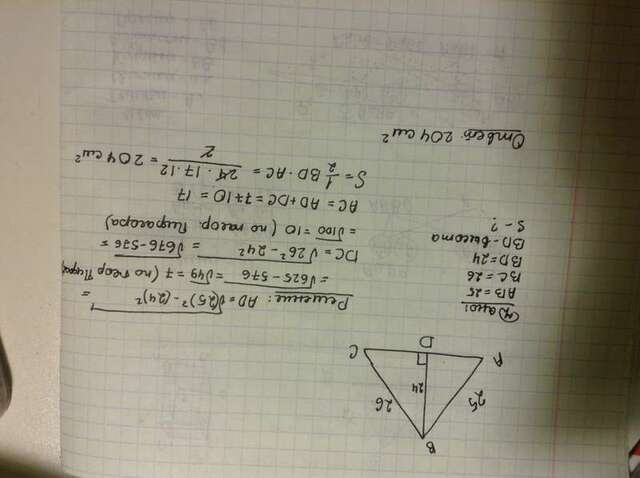 B
25
26
24
A
D
C
Дано:
AB=25
BC=26
BD=24
BD-высота
S-?
Решение: AD=√(25)²-(24)² =
=√625-576 = √49 = 7 (по теор. Пифаг
DC = √26²-24² = √676-576 =
= √100 = 10 (по теор. Пифагора)
AC = AD+DC = 7+10 = 17
S= 1/2 BD·AC = 24·17·12/2 = 204 см²
Ответ: 204 см²